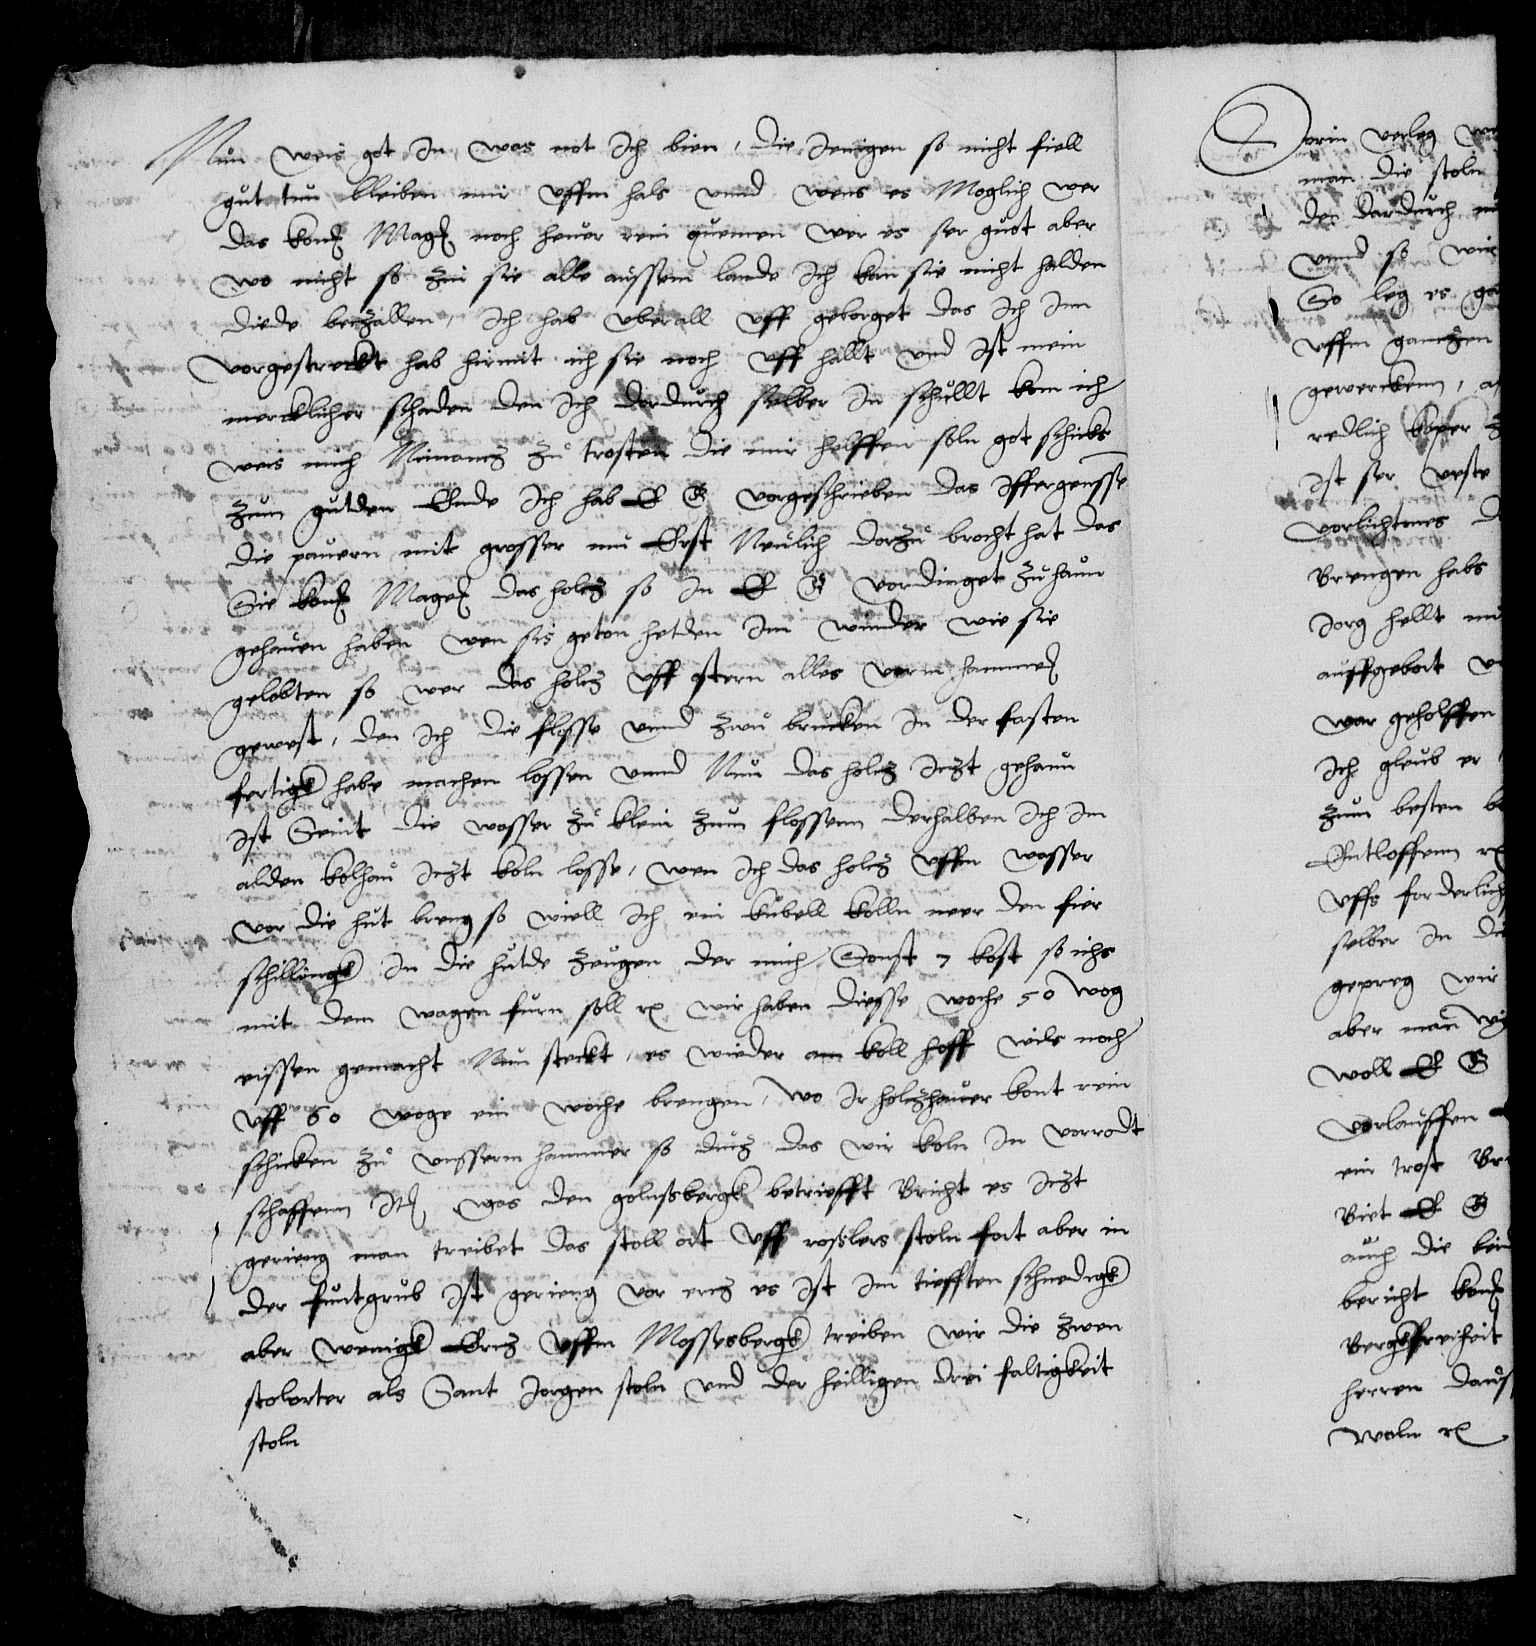 Nun weis got in was not ich bien, die Jenigen so nicht fiell
gut tun bleiben mir uffm hals unnd wens es Moglich wer
das kon Mag noch heuer rein quemen wer es ser guot aber
wo nicht so zin sie alle aussem lande Ich kan sie nicht halden
diede beizallen, ich hab uberall uff geborget das ich inn
vorgestreckt hab hirmit ich sie noch uff hallt und ist mein
mercklicher schaden den ich dordurch selber in schullt kom ich
weis mich Nimancz zu trosten die mir helffen soln got schicks
zum gutden Ende Ich hab E G vorgeschrieben das
die pauern mit grosser mu Erst Neulich dorzu brocht hat das
Sie kon Mage das holcz so in E G vordinget zuhaun
gehauen haben wen sis geton hetden im winder wie sie
gelobten so wer das holcz uff ostern alles vorm hammer
gewest, den ich die flosse unnd zwu brucken in der fasten
fertigk habe machen lossen unnd Nun das holcz iczt gehaun
ist Seint die wasser zu klein zum flossenn derhalben ich im
alden kolhau iczt koln losse, wen ich das holcz uffm wasser
vor die hut breng so wiell ich ein kubell kolln neer den fier
schillingk in die hutde zeugen der mich Sonst 7 kost so ichs
mit dem wagen furn soll etc wir haben diesse woche 50 wog
eissen gemacht Nun steckt, es wieder am koll hoff wils noch
uff 60 woge ein woche brengen, wo ir holczhauer kont rein
schicken zu unsserm hammer so duez das wir koln in vorrodt
schaffenn It was den golnssbergk betriefft Bricht es iczt
gerieng man treibet das stoll ort uff rosslers stoln fort aber in
der funtgrub ist gerieng vor ercz es ist im tiefften schnedigk
aber wenigk Ercz uffm Mossesbergk treiben wir die zwen
stolorter als Sant Jorgen stoln und der heilligen drei faltigkeit
stoln
Dorin verleg
man die stoln
der dardurch
unnd so wir
So leg es
uffm ganczen
gewerckenn,
redlich koper
ist ser veste
vorlichtenes
Brengen habs
Jorg hellt
auffgebort
war geholffen
ich gleub er
zum besten
Entloffenn
uffs forderlich
selber in die
gepreg wir
aber man
woll E G
vorlauffen
ein trost
Biet E G
auch die
bericht kon
Bergkfreiheit
herren
woln etc